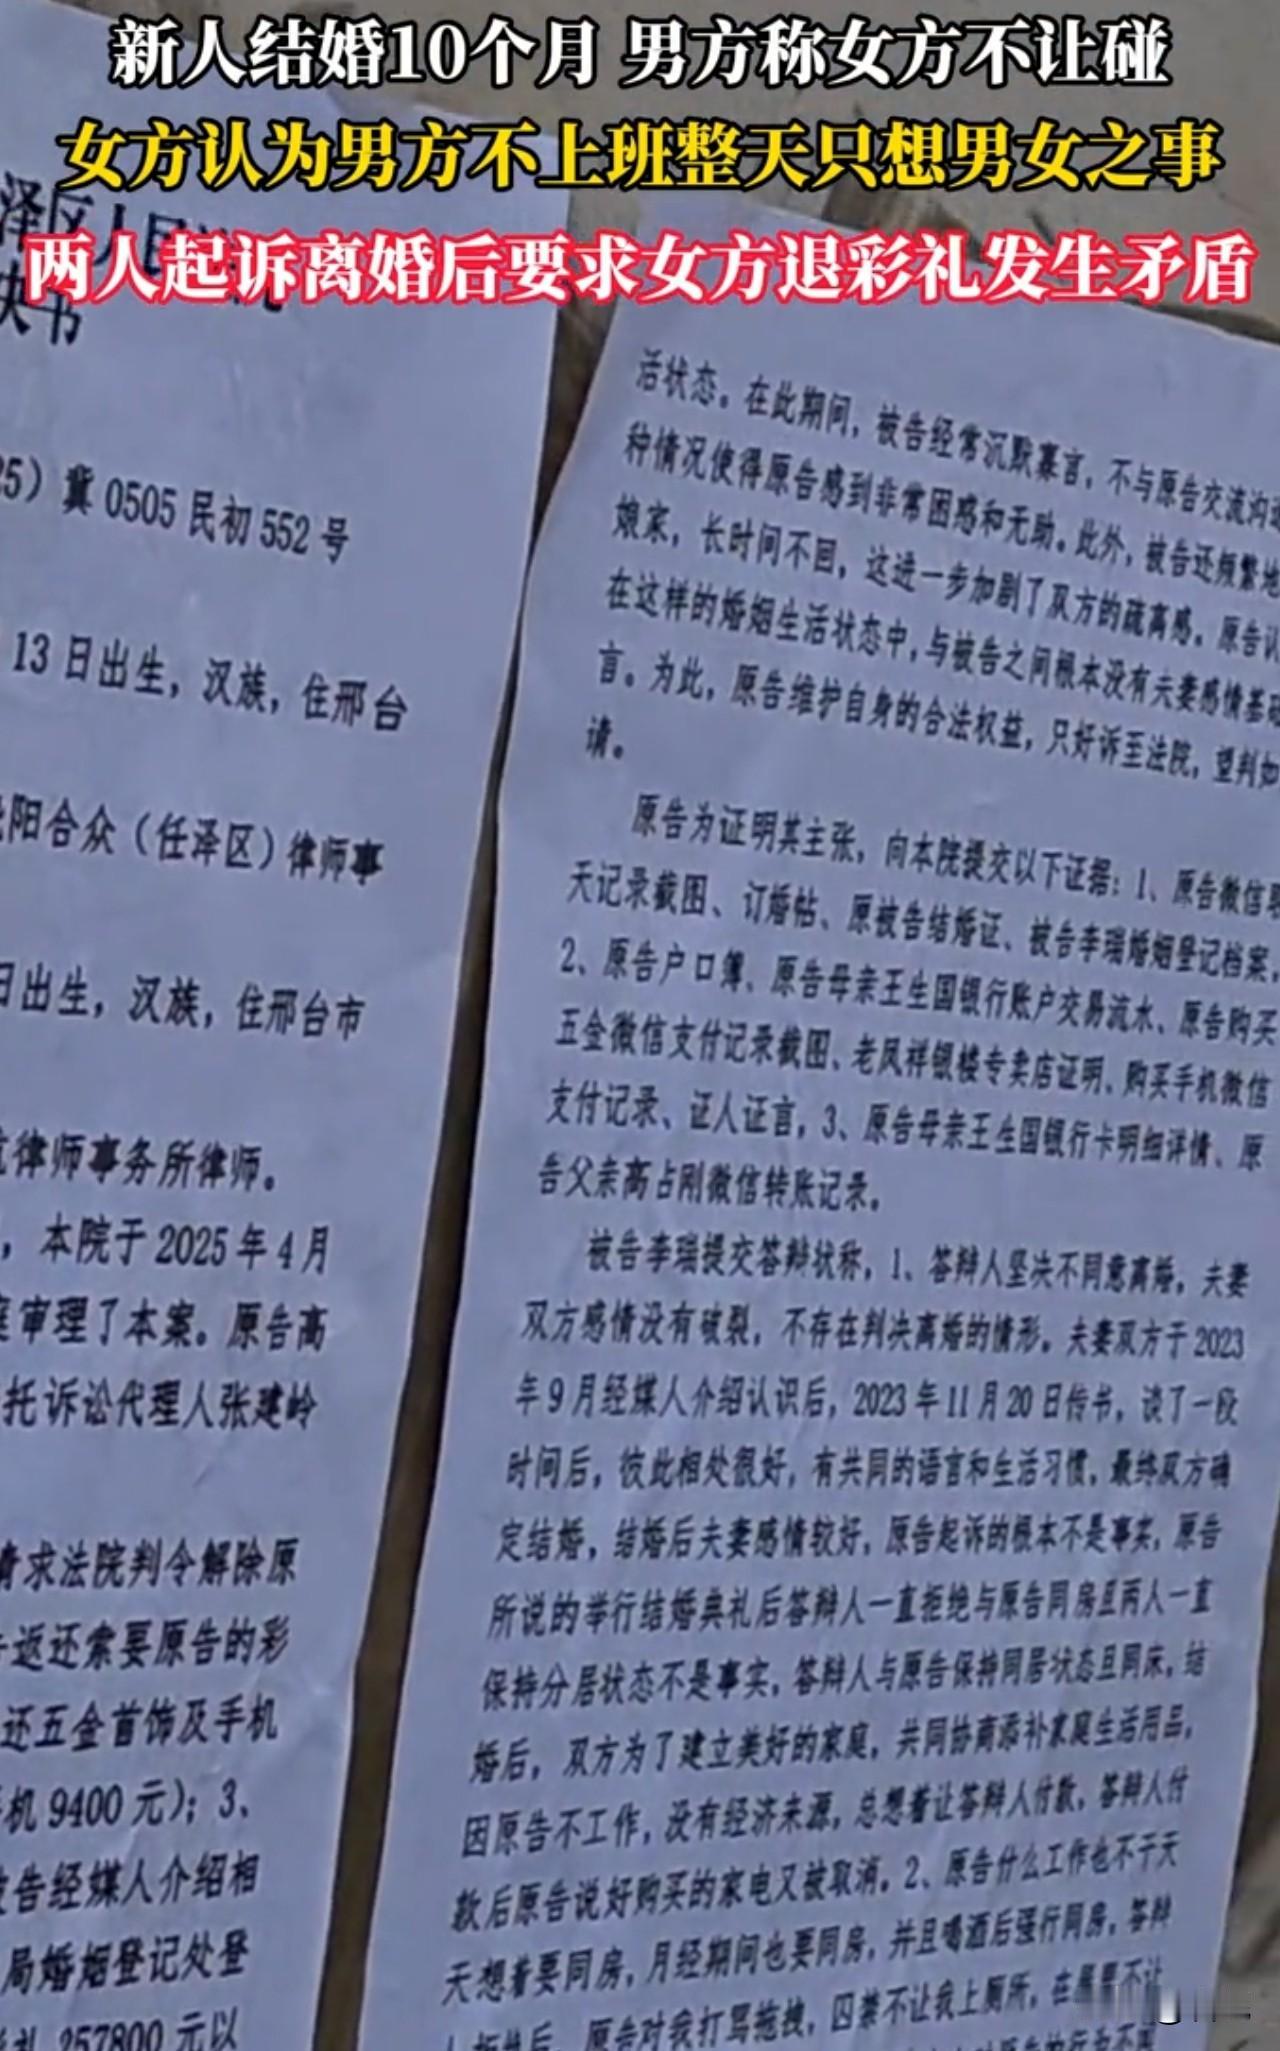 新人结婚10个月 男方称女方不让碰
女方认为男方不上班整天只想男女之事
两人起诉离婚后要求女方退彩礼发生矛盾
泽区人民
决书
25）冀 0505 民初 552 号
13 日出生，汉族，住邢台
阳合众（任泽区）律师事
日出生，汉族，住邢台市
律师事务所律师。
，本院于 2025 年 4 月
庭审理了本案。原告高
托诉讼代理人张建岭
请求法院判令解除原
返还索要原告的彩
还五金首饰及手机
机 9400 元）；3、
被告经媒人介绍相
局婚姻登记处登
礼 257800 元以
活状态。在此期间，被告经常沉默寡言，不与原告交流沟通
种情况使得原告感到非常困惑和无助。此外，被告还频繁地
娘家，长时间不回，这进一步加剧了双方的疏离感。原告认
在这样的婚姻生活状态中，与被告之间根本没有夫妻感情基础
言。为此，原告维护自身的合法权益，只好诉至法院，望判如
请。
原告为证明其主张，向本院提交以下证据：1、原告微信聊
天记录截图、订婚帖、原被告结婚证、被告李瑞婚姻登记档案，
2、原告户口簿、原告母亲王生国银行账户交易流水、原告购买
五金微信支付记录截图、老凤祥银楼专卖店证明、购买手机微信
支付记录、证人证言，3、原告母亲王生国银行卡明细详情、原
告父亲高占刚微信转账记录。
被告李瑞提交答辩状称，1、答辩人坚决不同意离婚，夫妻
双方感情没有破裂，不存在判决离婚的情形。夫妻双方于 2023
年 9 月经媒人介绍认识后，2023 年 11 月 20 日传书，谈了一段
时间后，彼此相处很好，有共同的语言和生活习惯，最终双方确
定结婚，结婚后夫妻感情较好，原告起诉的根本不是事实，原告
所说的举行结婚典礼后答辩人一直拒绝与原告同房且两人一直
保持分居状态不是事实，答辩人与原告保持同居状态且同床，结
婚后，双方为了建立美好的家庭，共同协商添补家庭生活用品，
因原告不工作，没有经济来源，总想着让答辩人付款，答辩人付
款后原告说好购买的家电又被取消。2、原告什么工作也不干天
天想着要同房，月经期间也要同房，并且喝酒后强行同房，答辩
人拒绝后，原告对我打骂拖拽，囚禁不让我上厕所，在屋里不让